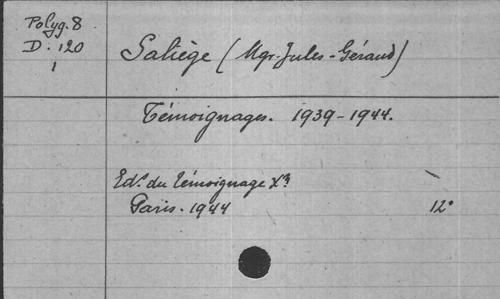 Polyg. 8
D. 120
1
Saliège (Mgr. Jules-Géraud)
Témoignages. 1939-1944.
Ed.ˢ du témoignage Xⁿ
Paris. 1944
12°